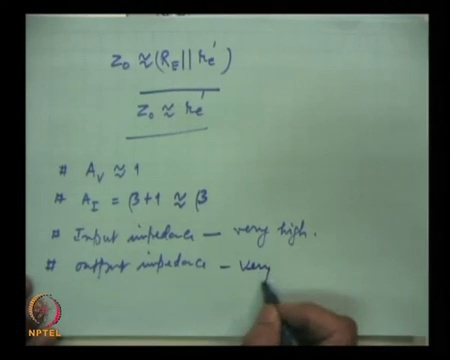 Zo ≈ (RE || re')
Zo ≈ re'
# Av ≈ 1
# AI = β+1 ≈ β
# Input impedance — very high.
# output impedance — very
NPTEL